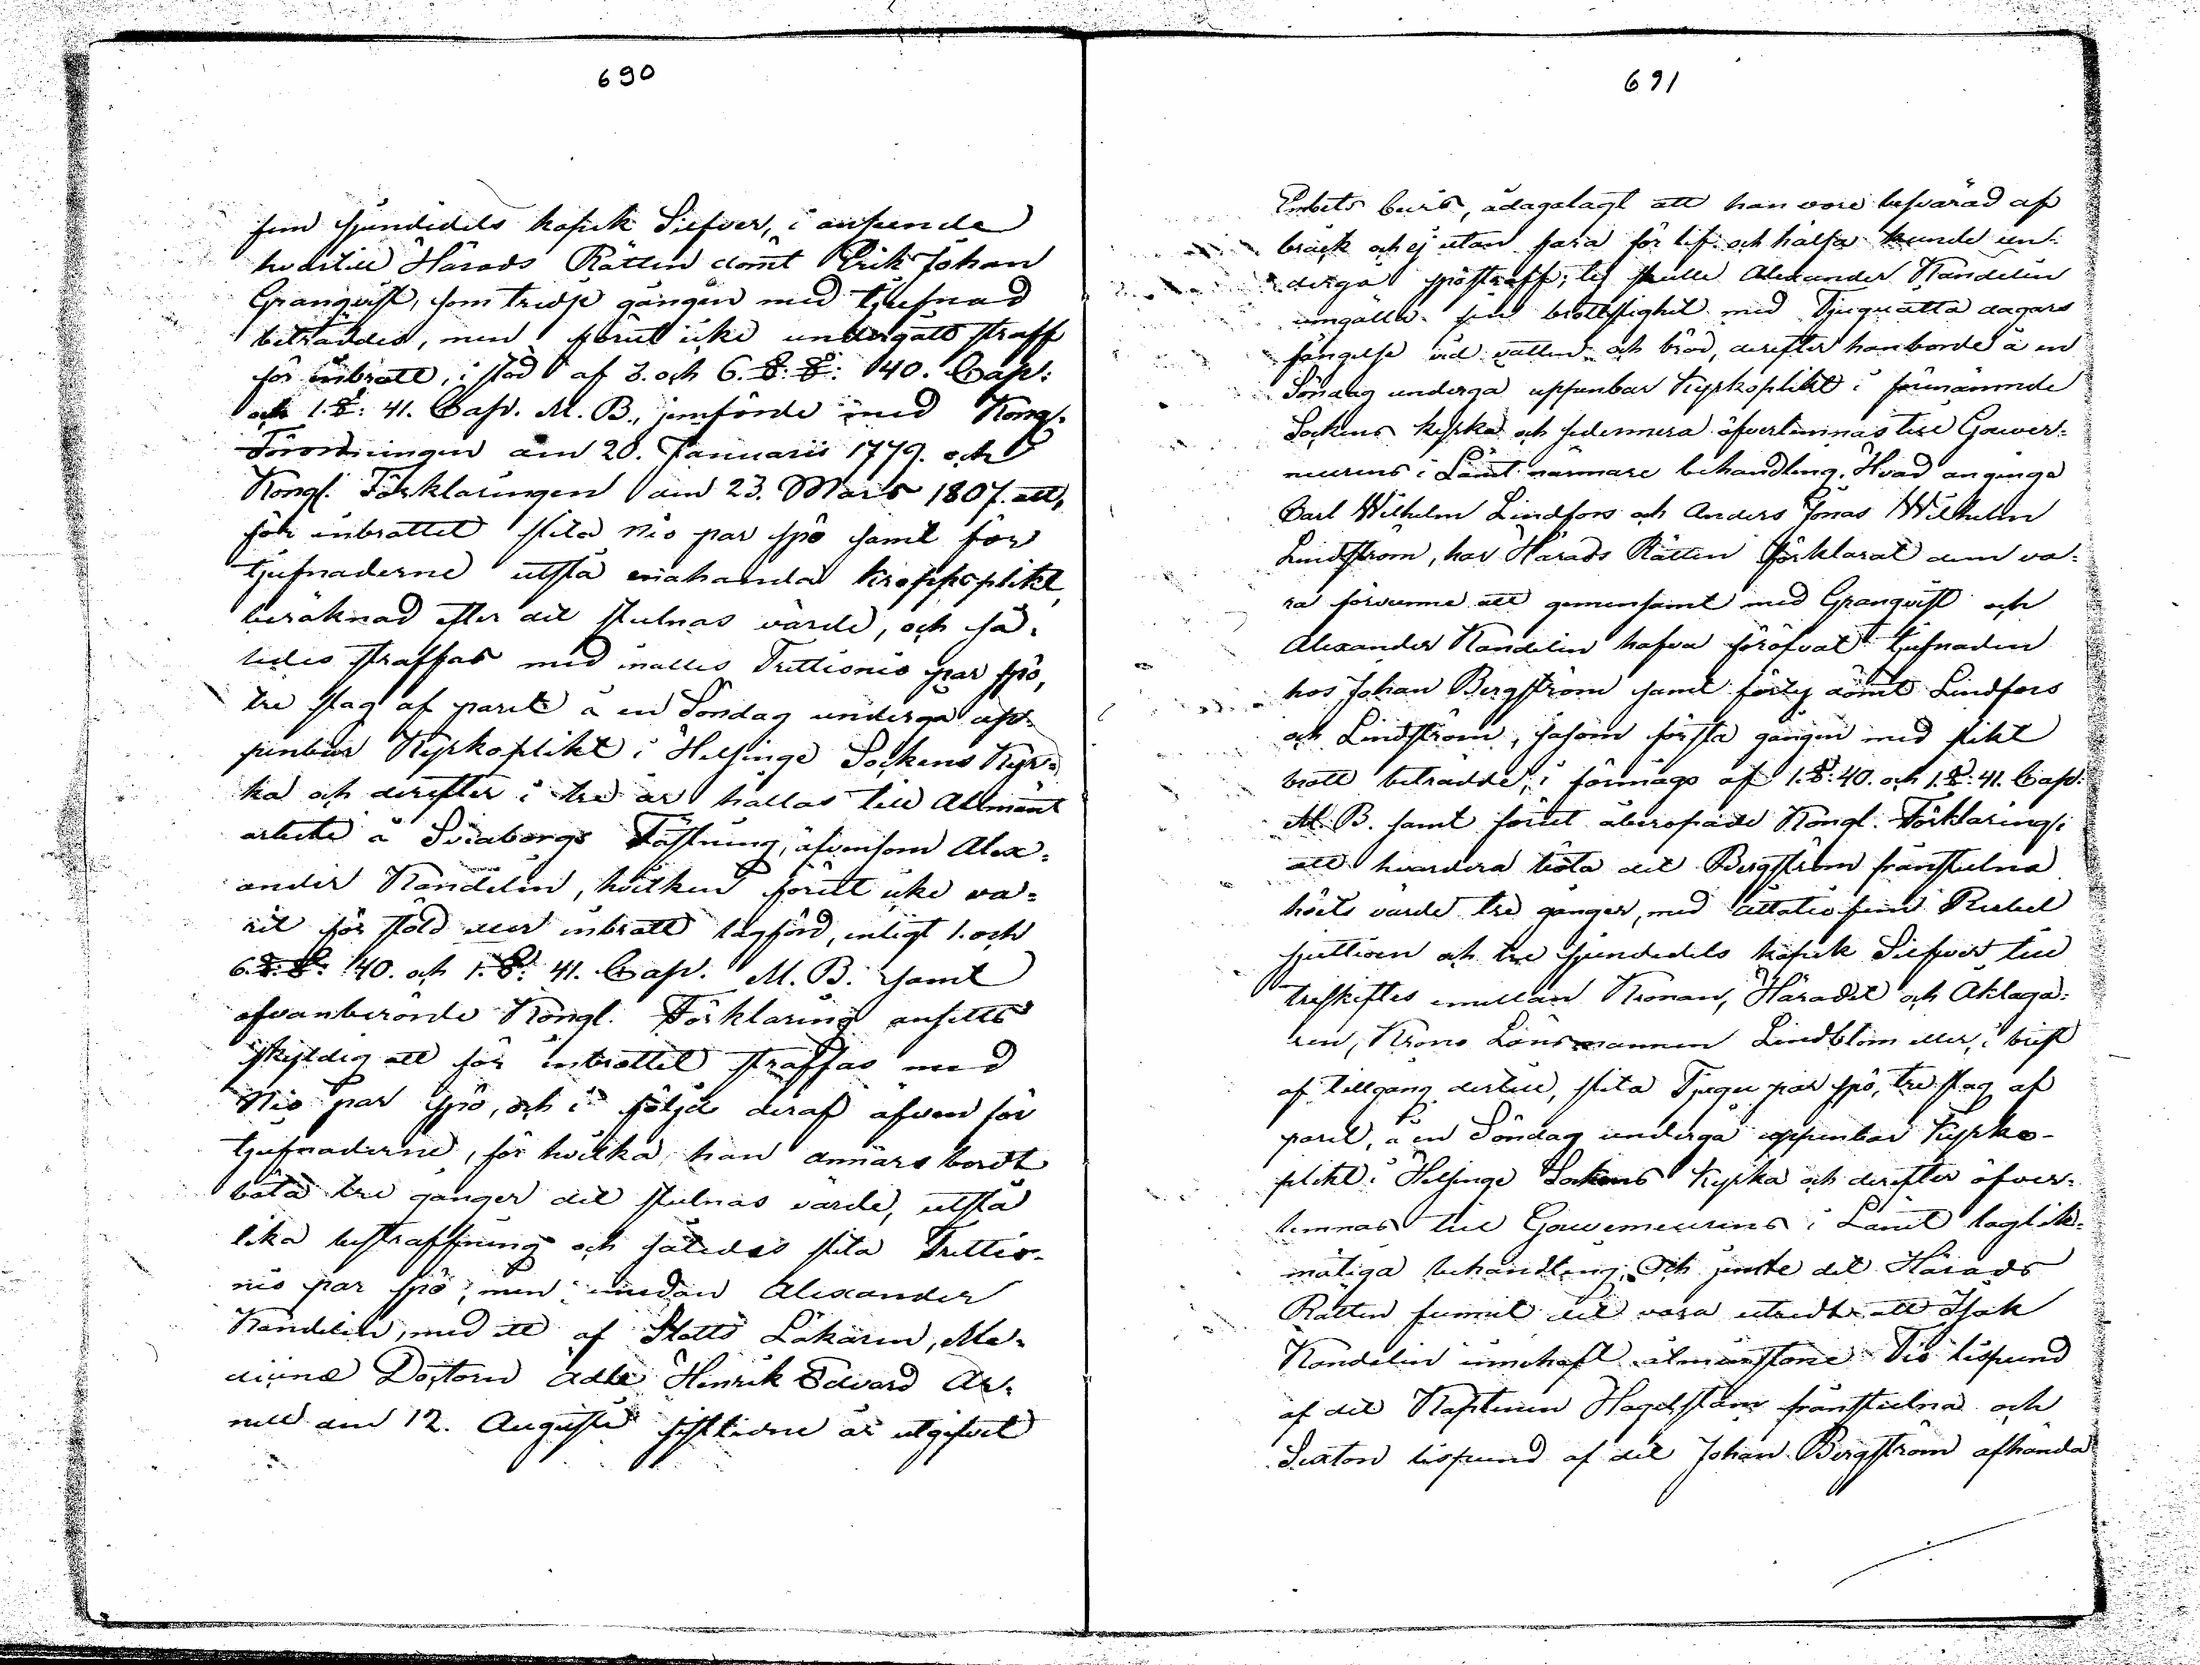 690
fem sjundedels kopek Silfver, i anseende
hvartill Härads Rätten dömt Erik Johan
Granqvist, som tredje gången med tjufnad
beträddes, men förut icke undergått straff
för inbrott, i stöd af 3. och 6. §. §: 40. Cap:
och 1. §: 41. Cap. M. B., jemförde med Kongl.
Förordningen den 20. Januarii 1779. och
Kongl. Förklaringen den 23. Mars 1807. att,
för inbrottet slita Nio par spö samt för
tjufnaderne utstå enahanda kroppsplikt,
beräknad efter det stulnas värde, och så-
ledes straffas med inalles Trettionio par spö,
tre slag af paret å en Söndag undergå up-
penbar Kyrkoplikt i Helsinge Sockens Kyr-
ka och derefter i tre år hållas till Allmänt
arbete å Sveaborgs Fästning, äfvensom Alex-
ander Kandelin, hvilken förut icke va-
rit för stöld eller inbrott lagförd, enligt 1. och
6. §. §: 40. och 1. §: 41. Cap. M. B. samt
ofvanberörde Kongl. Förklaring ansetts
skyldig att för inbrottet straffas med
Nio par spö, och i följd deraf äfven för
tjufnaderne, för hvilka han annars bordt
böta tre gånger det stulnas värde, utstå
lika bestraffning och således slita Trettio-
nio par spö; men emedan Alexander
Kandelin, med ett af Slotts Läkaren, Me-
dicinæ Doctorn Adle Henrik Edvard Ar-
nell den 12. Augusti sistledne år utgifvet
691
Embets bevis, ådagalagt att han vore besvärad af
bråck och ej utan fara för lif och hälsa kunde un-
dergå spöstraff; ty skulle Alexander Kandelin
umgälla sin brottslighet med Tjuguåtta dagars
fängelse vid vatten och bröd, derefter han borde å en
Söndag undergå uppenbar Kyrkoplikt i förenämnde
Sockens kyrka och sedermera öfverlemnas till Gouver-
neurens i Länet närmare behandling. Hvad anginge
Carl Wilhelm Lindfors och Anders Jonas Wilhelm
Lindström, har Härads Rätten förklarat dem va-
ra förvunne att gemensamt med Granqvist och
Alexander Kandelin hafva föröfvat tjufnaden
hos Johan Bergström samt förty dömt Lindfors
och Lindström, såsom första gången med slikt
brott beträdde, i förmågo af 1. §: 40. och 1. §: 41. Cap:
M. B. samt förut åberopade Kongl. Förklaring,
att hvardera böta det Bergström frånstulna
höets värde tre gånger, med åttatio fem Rubel
sjuttioen och tre sjundedels kopek Silfver till
treskiftes emellan Kronan, Häradet och Åklaga-
ren, Krono Länsmannen Lindblom eller, i brist
af tillgång dertill, slita Tjugu par spö, tre slag af
paret, å en Söndag undergå uppenbar Kyrko-
plikt i Helsinge Sockens Kyrka och derefter öfver-
lemnas till Gouverneurens i Länet laglik-
mätiga behandling. Och jemte det Härads
Rätten funnit det vara utredt att Isak
Kandelin innehaft åtminstone Tio lispund
af det Kaptenen Hagelstam frånstulna och
Sexton lispund af det Johan Bergström afhända